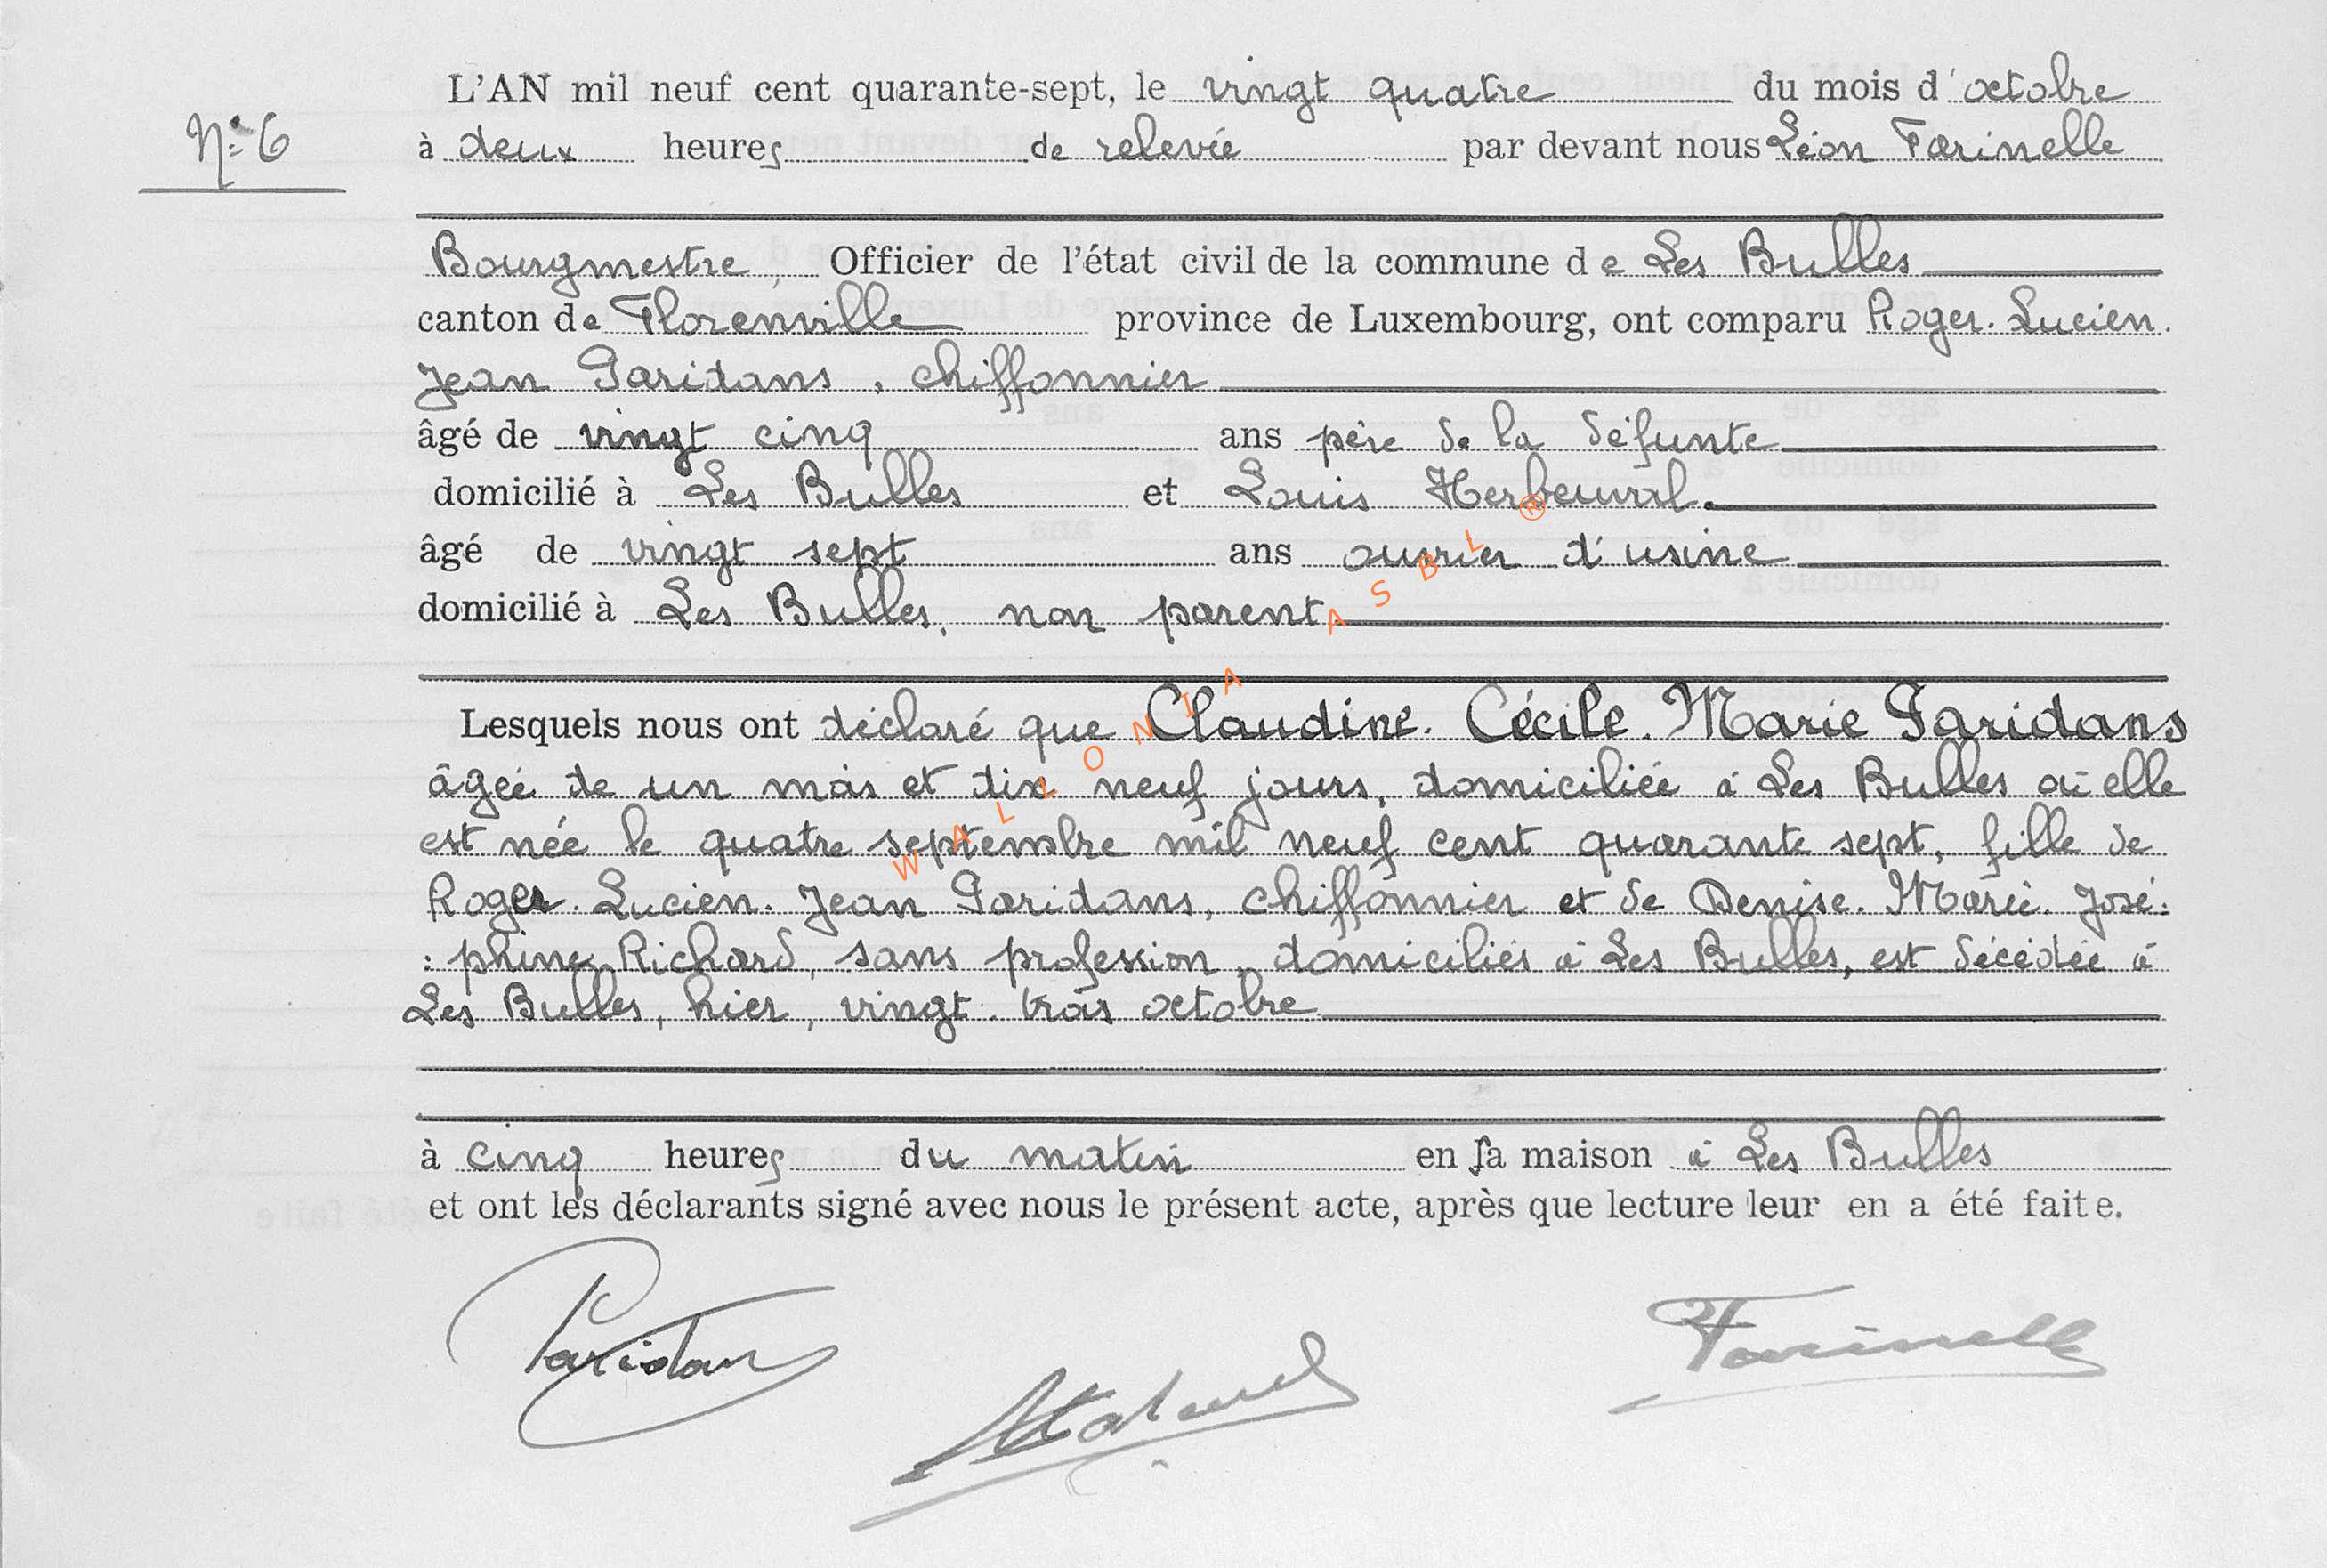 L'AN mil neuf cent quarante-sept, le vingt quatre du mois d'octobre
N° 6
à deux heures de relevée par devant nous Léon Farinelle
Bourgmestre, Officier de l'état civil de la commune de Les Bulles
canton de Florenville province de Luxembourg, ont comparu Roger. Lucien.
Jean Paridans, chiffonnier
âgé de vingt cinq ans père de la défunte
domicilié à Les Bulles et Louis Herbeuval.
âgé de vingt sept ans ouvrier d'usine
domicilié à Les Bulles, non parent
Lesquels nous ont déclaré que Claudine. Cécile. Marie Paridans
âgée de un mois et dix neuf jours, domiciliée à Les Bulles où elle
est née le quatre septembre mil neuf cent quarante sept, fille de
Roger. Lucien. Jean Paridans, chiffonnier et de Denise. Marie. José:
:phine Richard, sans profession, domiciliés à Les Bulles, est décédée à
Les Bulles, hier, vingt. trois octobre
à cinq heures du matin en sa maison à Les Bulles
et ont les déclarants signé avec nous le présent acte, après que lecture leur en a été faite.
Paridans
Farinelle
WALLONIA ASBL ®